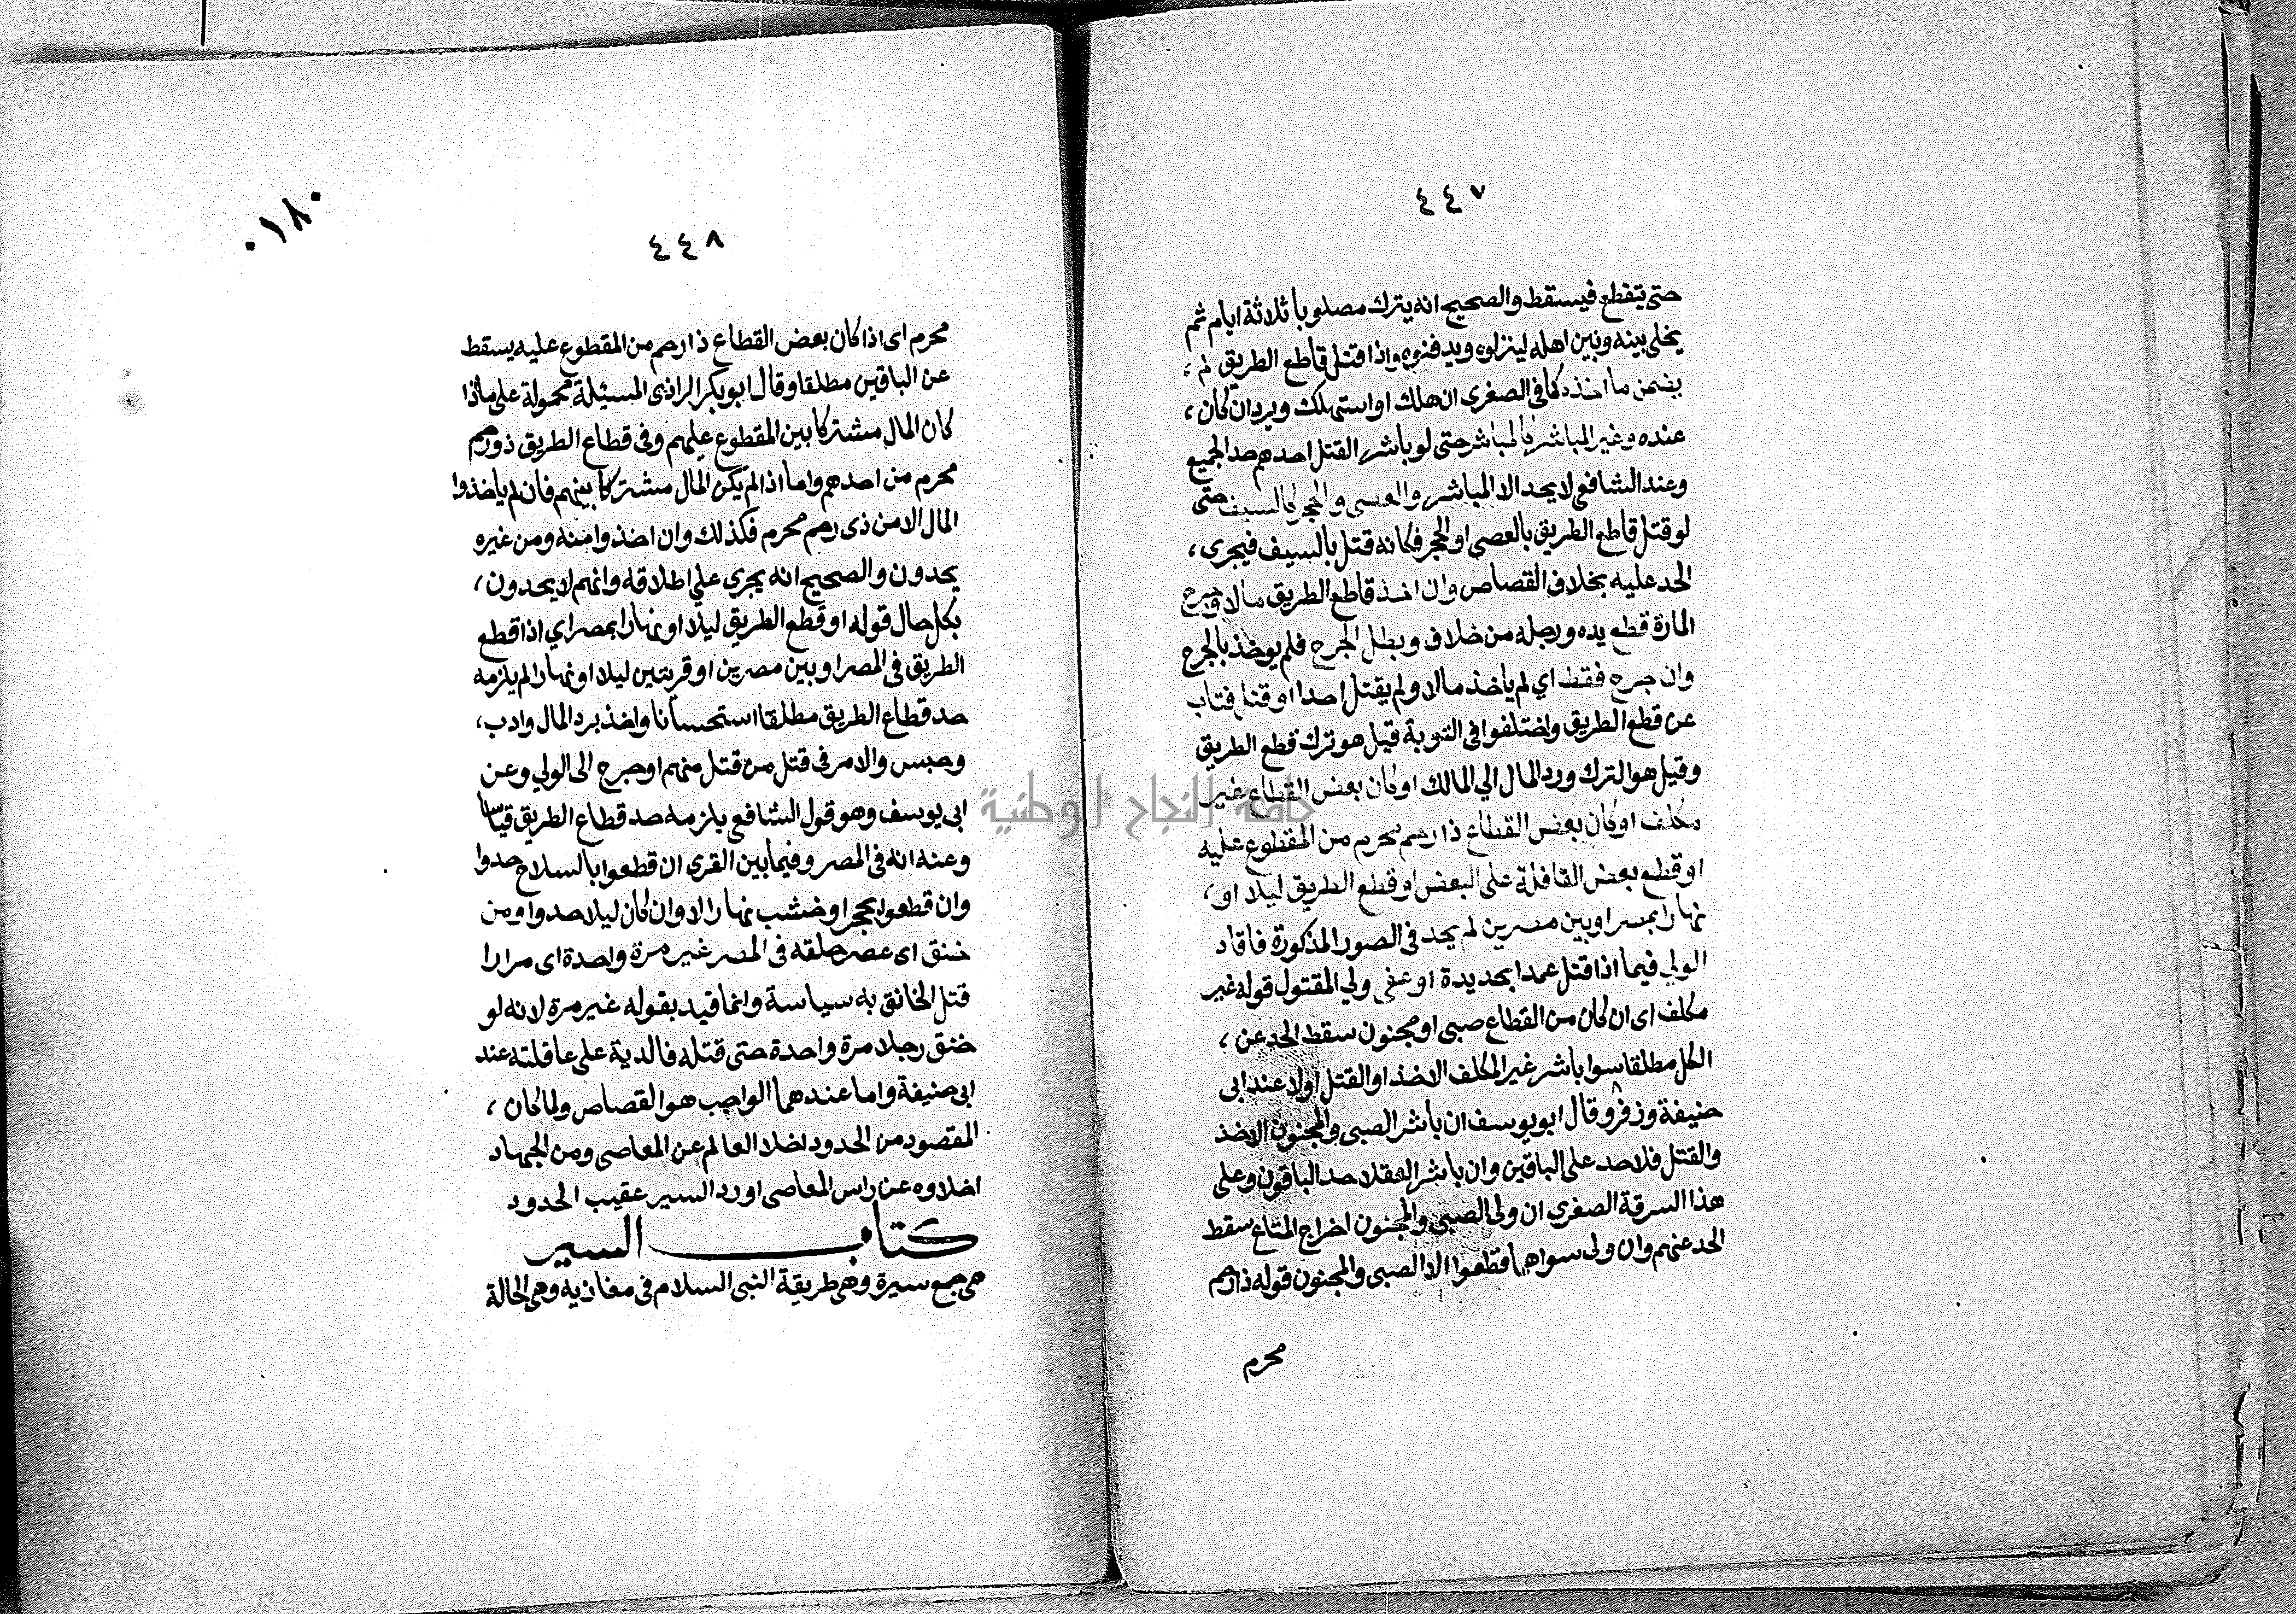 ٤٤٧
حتى يتقطع فيسقط والصحيح انه يترك مصلوبا ثلاثة ايام ثم
يخلى بينه وبين اهله لينزلوه ويدفنوه واذا قتل قاطع الطريق لم
يضمن ما اخذه كما في الصغرى ان هلك او استهلك ويرد ان كان
عنده وغير المباشر كالمباشر حتى لو باشر القتل احدهم حد الجميع
وعند الشافعي لا يحد الا المباشر والعصى والحجر كالسيف حتى
لو قتل قاطع الطريق بالعصى او الحجر فكانه قتل بالسيف فيجرى
الحد عليه بخلاف القصاص وان اخذ قاطع الطريق مالا وجرح
المارة قطع يده ورجله من خلاف وبطل الجرح فلم يوخذ بالجرح
وان جرح فقط اي لم ياخذ مالا ولم يقتل احدا او قتل فتاب
عن قطع الطريق واختلفوا في التوبة قيل هو ترك قطع الطريق
وقيل هو الترك ورد المال الي المالك او كان بعض القطاع غير
مكلف او كان بعض القطاع ذا رحم محرم من المقطوع عليه
او قطع بعض القافلة على البعض او قطع الطريق ليلا او
نهارا بمصر او بين مصرين لم يحد في الصور المذكورة فاقاد
الولي فيما اذا قتل عمدا بحديدة او عفى ولي المقتول قوله غير
مكلف اى ان كان من القطاع صبى او مجنون سقط الحد عن
الكل مطلقا سوا باشر غير المكلف الاخذ او القتل اولا عند ابى
حنيفة وزفر وقال ابو يوسف ان باشر الصبى والمجنون الاخذ
والقتل فلا حد على الباقين وان باشر العقلا حد الباقون وعلى
هذا السرقة الصغرى ان ولى الصبى والمجنون اخراج المتاع سقط
الحد عنهم وان ولى سواهما قطعوا الا الصبى والمجنون قوله ذا رحم
محرم
٠١٨٠
٤٤٨
محرم اى اذا كان بعض القطاع ذا رحم من المقطوع عليه يسقط
عن الباقين مطلقا وقال ابو بكر الرازى المسئلة محمولة على ما اذا
كان المال مشتركا بين المقطوع عليهم وفى قطاع الطريق ذو رحم
محرم من احدهم واما اذا لم يكن المال مشتركا بينهم فان لم ياخذوا
المال الا من ذى رحم محرم فكذلك وان اخذوا منه ومن غيره
يحدون والصحيح انه يجرى على اطلاقه وانهم لا يحدون
بكل حال قوله او قطع الطريق ليلا او نهارا بمصر اي اذا قطع
الطريق في المصر او بين مصرين او قريتين ليلا او نهارا لم يلزمه
حد قطاع الطريق مطلقا استحسانا واخذ برد المال وادب
وحبس والامر فى قتل من قتل منهم او جرح الى الولي وعن
ابى يوسف وهو قول الشافعي يلزمه حد قطاع الطريق قياسا
وعنه انه فى المصر وفيما بين القرى ان قطعوا بالسلاح حدوا
وان قطعوا بحجر او خشب نهارا لا وان كان ليلا حدوا ومن
خنق اى عصر حلقه فى المصر غير مرة واحدة اى مرارا
قتل الخانق به سياسة وانما قيد بقوله غير مرة لانه لو
خنق رجلا مرة واحدة حتى قتله فالدية على عاقلته عند
ابى حنيفة واما عندهما الواجب هو القصاص ولما كان
المقصود من الحدود اخلا العالم عن المعاصى ومن الجهاد
اخلاوه عن راس المعاصى اورد السير عقيب الحدود
كتاب السير
هى جمع سيرة وهى طريقة النبى السلام فى مغازيه وهى الحالة
جامعة النجاح الوطنية